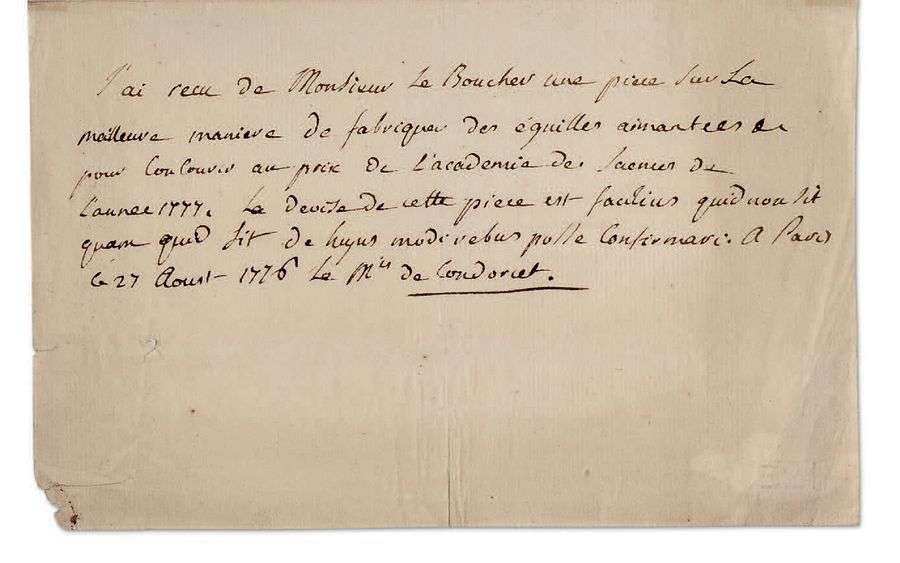 J'ai recu de Monsieur Le Boucher une piece sur La
meilleure maniere de fabriquer des éguilles aimantees &
pour concourir au prix de L'academie des sciences de
L'annee 1777. La devise de cette piece est facilius quid non sit
quam quid sit de hujus modi rebus posse confirmari. A Paris
ce 27 Aoust 1776 Le Mis de Condorcet.